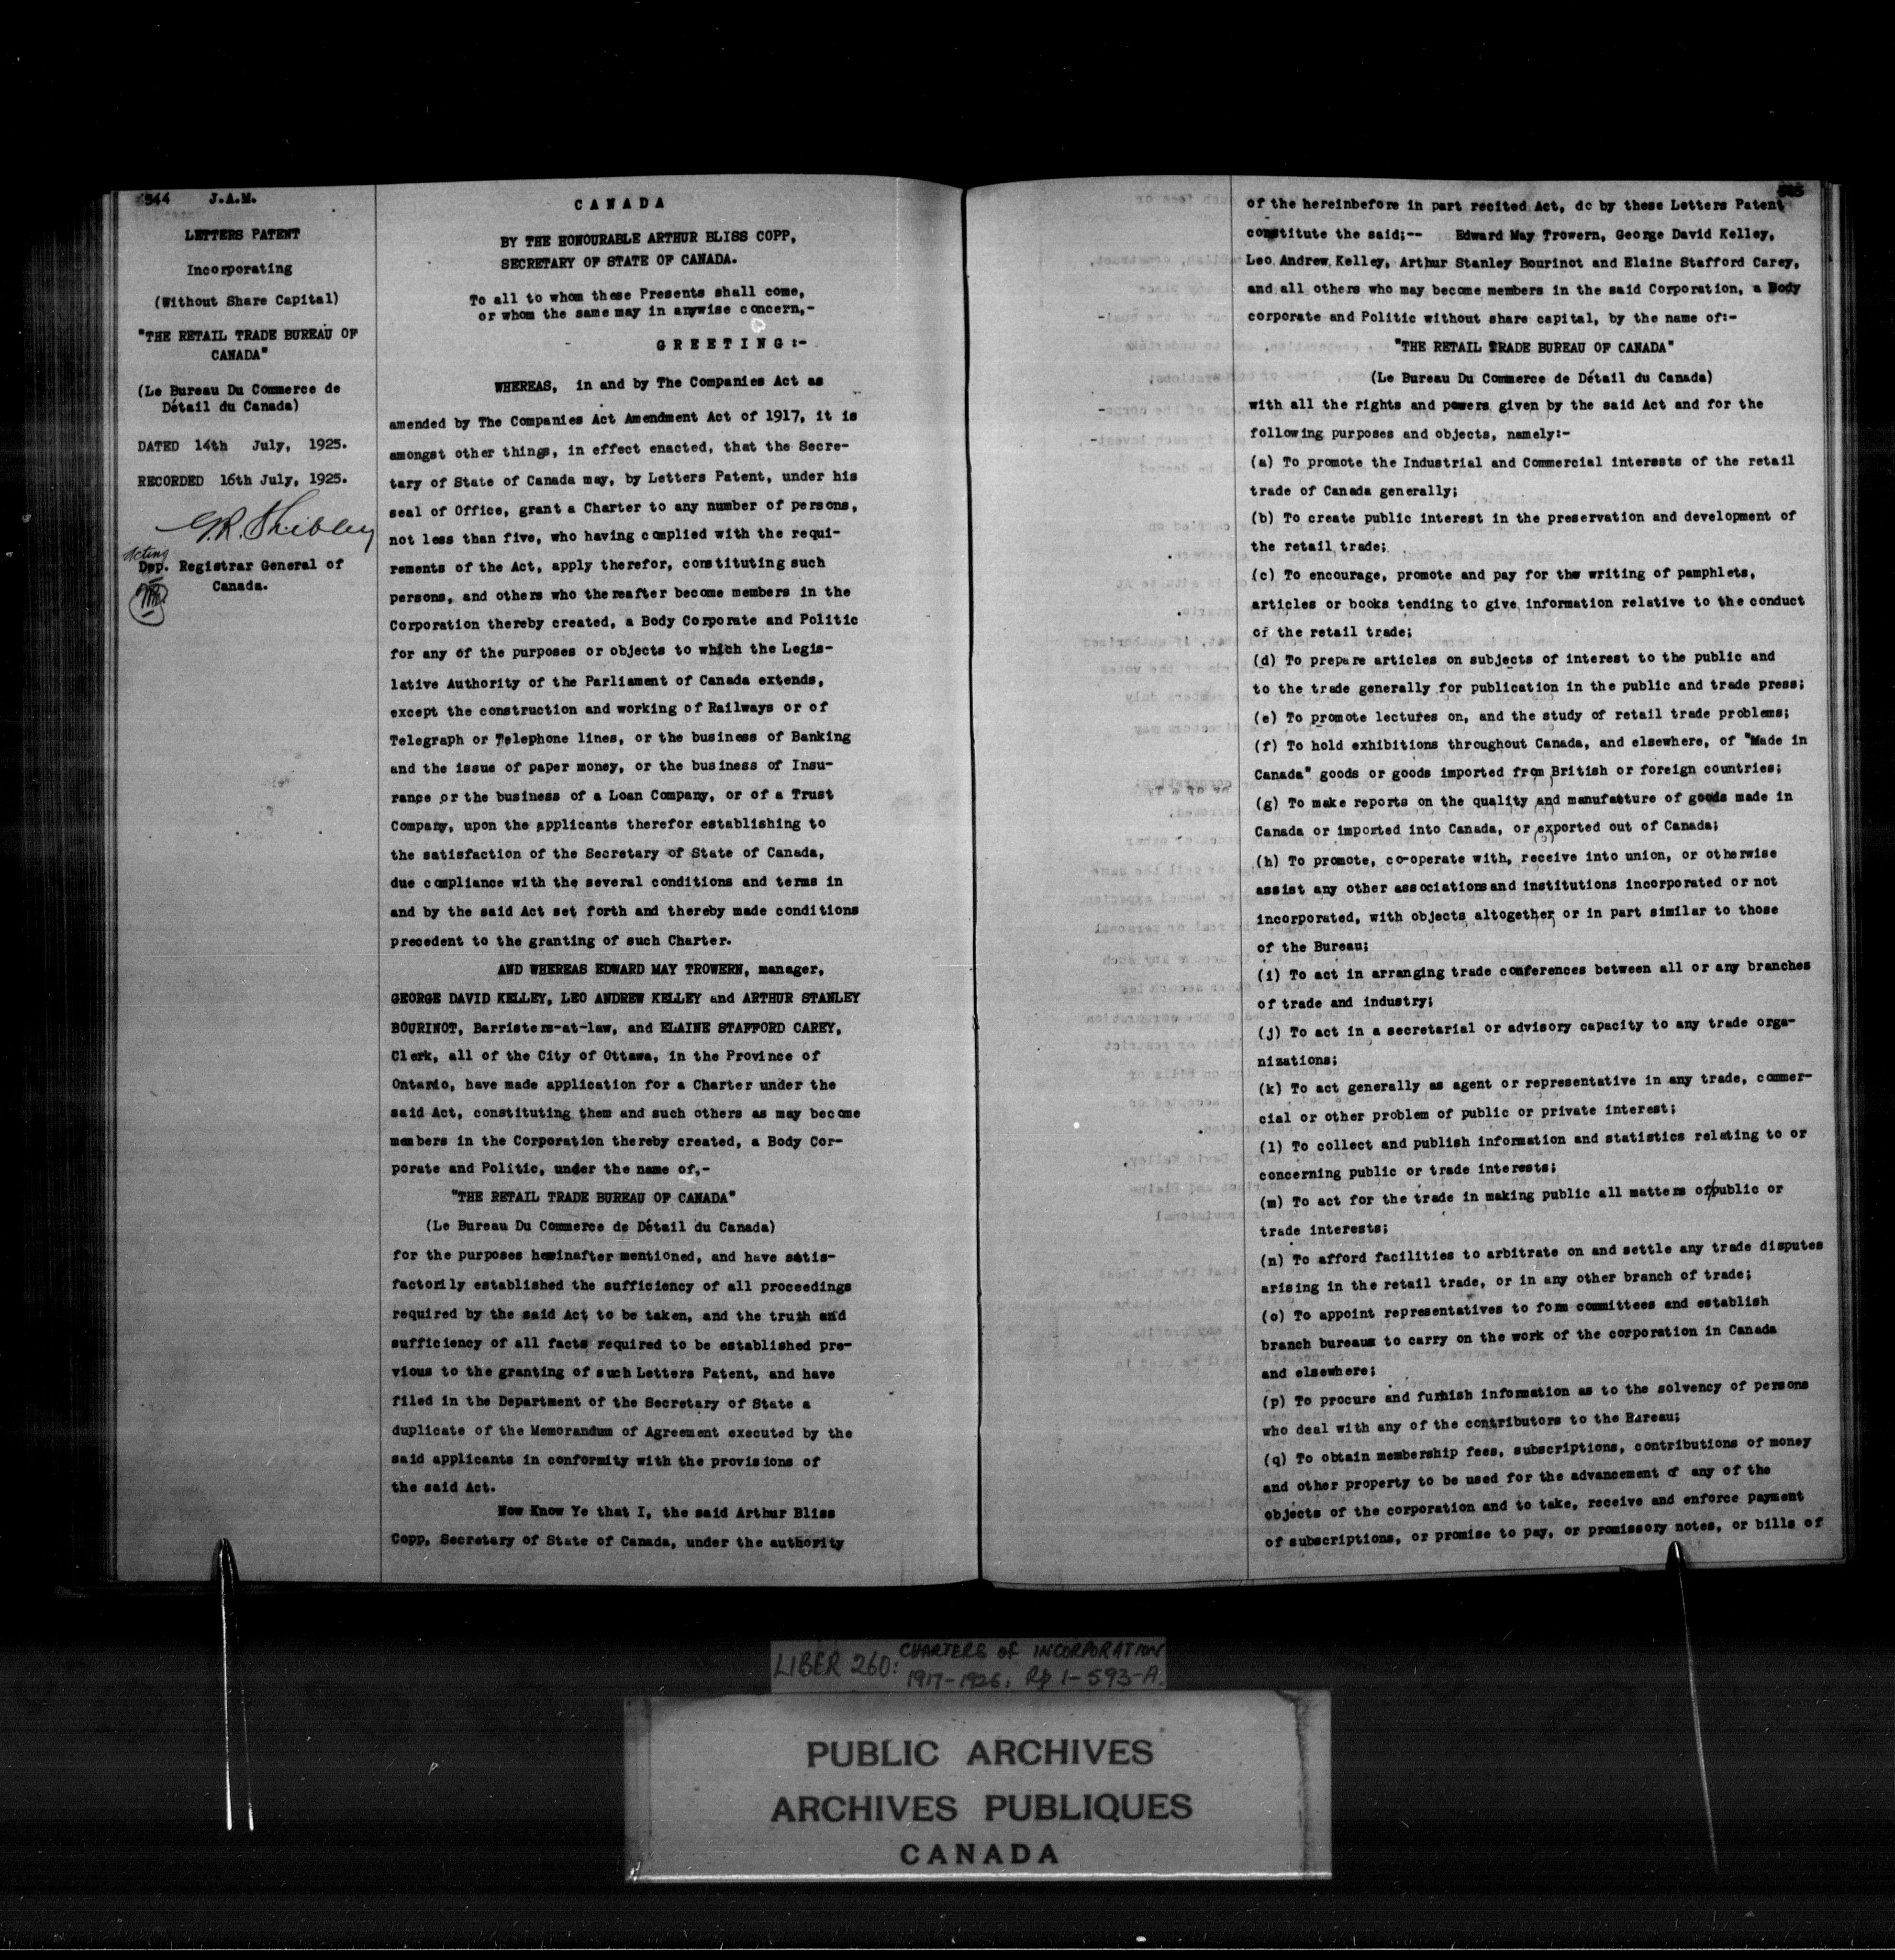 544 J.A.M.
LETTERS PATENT
Incorporating
(Without Share Capital)
"THE RETAIL TRADE BUREAU OF
CANADA"
(Le Bureau Du Commerce de
Détail du Canada)
DATED 14th July, 1925.
RECORDED 16th July, 1925.
G.R. Shibley
Acting
Dep. Registrar General of
Canada.
CANADA
BY THE HONOURABLE ARTHUR BLISS COPP,
SECRETARY OF STATE OF CANADA.
To all to whom these Presents shall come,
or whom the same may in anywise concern,-
GREETING:-
WHEREAS, in and by The Companies Act as
amended by The Companies Act Amendment Act of 1917, it is
amongst other things, in effect enacted, that the Secre-
tary of State of Canada may, by Letters Patent, under his
seal of Office, grant a Charter to any number of persons,
not less than five, who having complied with the requi-
rements of the Act, apply therefor, constituting such
persons, and others who thereafter become members in the
Corporation thereby created, a Body Corporate and Politic
for any of the purposes or objects to which the Legis-
lative Authority of the Parliament of Canada extends,
except the construction and working of Railways or of
Telegraph or Telephone lines, or the business of Banking
and the issue of paper money, or the business of Insu-
rance or the business of a Loan Company, or of a Trust
Company, upon the applicants therefor establishing to
the satisfaction of the Secretary of State of Canada,
due compliance with the several conditions and terms in
and by the said Act set forth and thereby made conditions
precedent to the granting of such Charter.
AND WHEREAS EDWARD MAY TROWERN, manager,
GEORGE DAVID KELLEY, LEO ANDREW KELLEY and ARTHUR STANLEY
BOURINOT, Barristers-at-law, and ELAINE STAFFORD CAREY,
Clerk, all of the City of Ottawa, in the Province of
Ontario, have made application for a Charter under the
said Act, constituting them and such others as may become
members in the Corporation thereby created, a Body Cor-
porate and Politic, under the name of,-
"THE RETAIL TRADE BUREAU OF CANADA"
(Le Bureau Du Commerce de Détail du Canada)
for the purposes hereinafter mentioned, and have satis-
factorily established the sufficiency of all proceedings
required by the said Act to be taken, and the truth and
sufficiency of all facts required to be established pre-
vious to the granting of such Letters Patent, and have
filed in the Department of the Secretary of State a
duplicate of the Memorandum of Agreement executed by the
said applicants in conformity with the provisions of
the said Act.
Now Know Ye that I, the said Arthur Bliss
Copp, Secretary of State of Canada, under the authority
of the hereinbefore in part recited Act, do by these Letters Patent
constitute the said;-- Edward May Trowern, George David Kelley,
Leo Andrew Kelley, Arthur Stanley Bourinot and Elaine Stafford Carey,
and all others who may become members in the said Corporation, a Body
corporate and Politic without share capital, by the name of:-
"THE RETAIL TRADE BUREAU OF CANADA"
(Le Bureau Du Commerce de Détail du Canada)
with all the rights and powers given by the said Act and for the
following purposes and objects, namely:-
(a) To promote the Industrial and Commercial interests of the retail
trade of Canada generally;
(b) To create public interest in the preservation and development of
the retail trade;
(c) To encourage, promote and pay for the writing of pamphlets,
articles or books tending to give information relative to the conduct
of the retail trade;
(d) To prepare articles on subjects of interest to the public and
to the trade generally for publication in the public and trade press;
(e) To promote lectures on, and the study of retail trade problems;
(f) To hold exhibitions throughout Canada, and elsewhere, of "Made in
Canada" goods or goods imported from British or foreign countries;
(g) To make reports on the quality and manufacture of goods made in
Canada or imported into Canada, or exported out of Canada;
(h) To promote, co-operate with, receive into union, or otherwise
assist any other associations and institutions incorporated or not
incorporated, with objects altogether or in part similar to those
of the Bureau;
(i) To act in arranging trade conferences between all or any branches
of trade and industry;
(j) To act in a secretarial or advisory capacity to any trade orga-
nizations;
(k) To act generally as agent or representative in any trade, commer-
cial or other problem of public or private interest;
(l) To collect and publish information and statistics relating to or
concerning public or trade interests;
(m) To act for the trade in making public all matters of/public or
trade interests;
(n) To afford facilities to arbitrate on and settle any trade disputes
arising in the retail trade, or in any other branch of trade;
(o) To appoint representatives to form committees and establish
branch bureaus to carry on the work of the corporation in Canada
and elsewhere;
(p) To procure and furnish information as to the solvency of persons
who deal with any of the contributors to the Bureau;
(q) To obtain membership fees, subscriptions, contributions of money
and other property to be used for the advancement of any of the
objects of the corporation and to take, receive and enforce payment
of subscriptions, or promise to pay, or promissory notes, or bills of
LIBER 260: CHARTERS of INCORPORATION
1917-1926, Rp 1-593-A.
PUBLIC ARCHIVES
ARCHIVES PUBLIQUES
CANADA